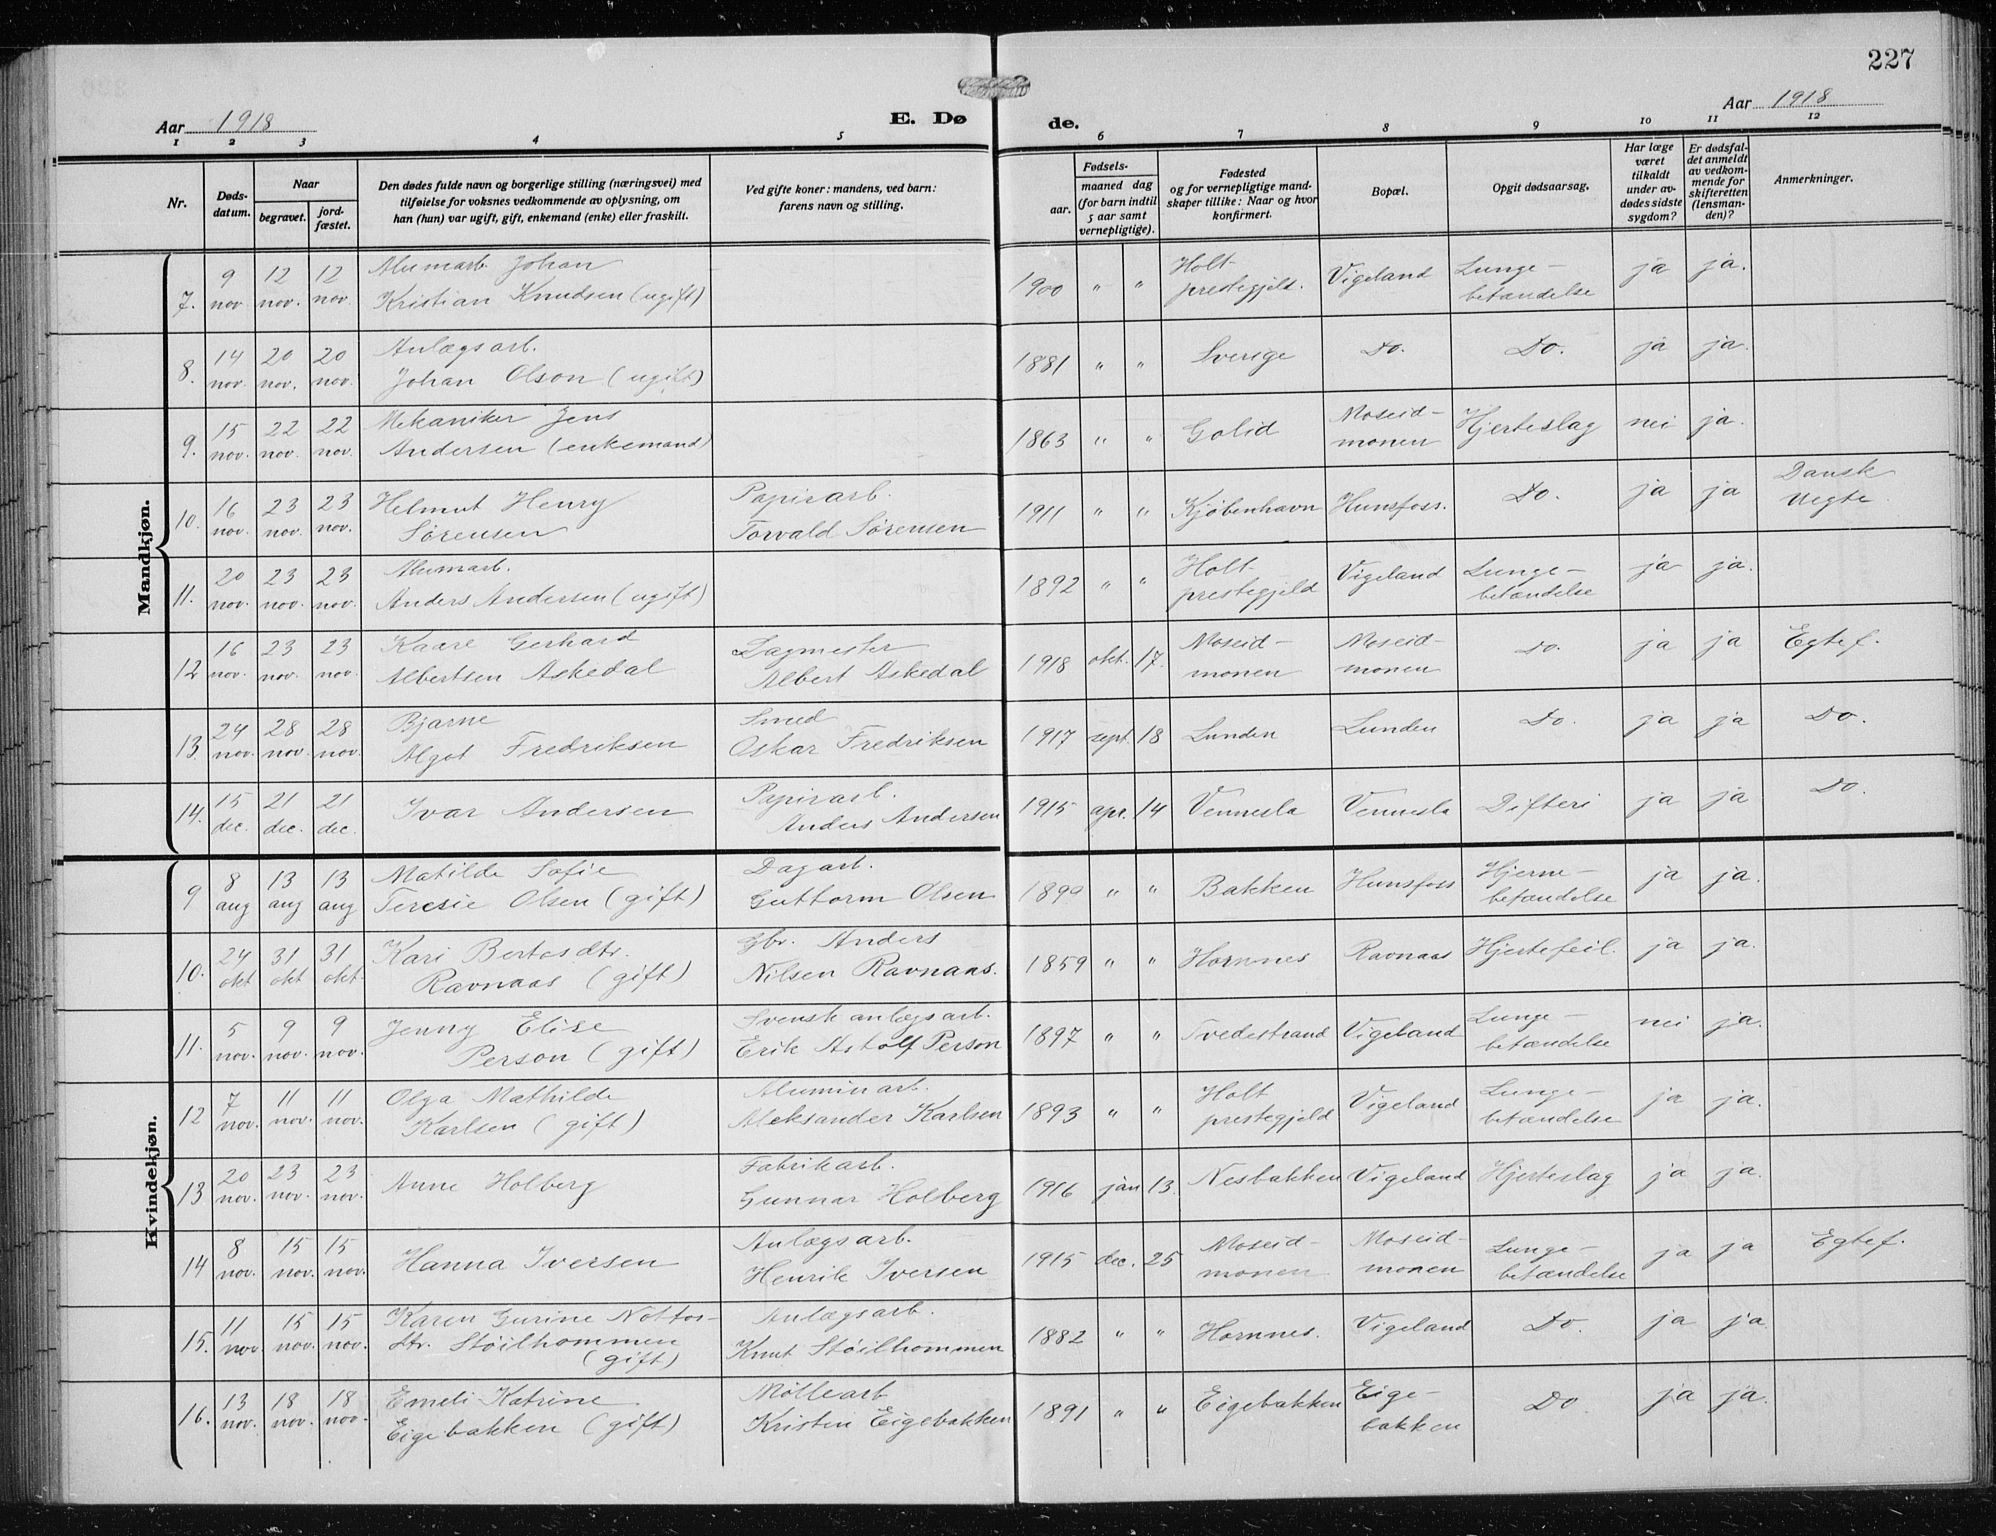 227
Aar 1918
E. Døde.
Aar 1918
1 2 3 4 5 6 7 8 9 10 11 12
Nr.
Dødsdatum.
Naar
begravet.
jordfæstet.
Den dødes fulde navn og borgerlige stilling (næringsvei) med
tilføielse for voksnes vedkommende av oplysning, om
han (hun) var ugift, gift, enkemand (enke) eller fraskilt.
Ved gifte koner: mandens, ved barn:
farens navn og stilling.
Fødsels-
aar.
maaned dag
(for barn indtil
5 aar samt
vernepligtige).
Fødested
og for vernepligtige mandskaper tillike: Naar og hvor
konfirmert.
Bopæl.
Opgit dødsaarsag.
Har læge
været
tilkaldt
under avdødes sidste
sygdom?
Er dødsfaldet anmeldt
av vedkommende for
skifteretten
(lensmanden)?
Anmerkninger.
Mandkjøn.
7. 9 nov. 12 nov. 12 nov. Alumarb. Johan Kristian Knudsen (ugift) 1900 " " Holt prestegjeld. Vigeland Lunge-betændelse ja ja.
8. 14 nov. 20 nov. 20 nov. Anlægsarb. Johan Olson (ugift) 1881 " " Sverige Do. Do. ja ja.
9. 15 nov. 22 nov. 22 nov. Mekaniker Jens Andersen (enkemand) 1863 " " Golid Moseid-monen Hjerteslag nei ja.
10. 16 nov. 23 nov. 23 nov. Helmut Henry Sørensen Papirarb. Torvald Sørensen 1911 " " Kjøbenhavn Hunsfoss. Do. ja ja Dansk Uegte.
11. 20 nov. 23 nov. 23 nov. Alumarb. Anders Andersen (ugift) 1892 " " Holt prestegjeld Vigeland Lunge-betændelse ja ja.
12 16 nov. 23 nov. 23 nov. Kaare Gerhard Albertsen Askedal Dagmester Albert Askedal 1918 okt. 17. Moseid-monen Moseid-monen Do. ja ja Egtef.
13. 24 nov. 28 nov. 28 nov. Bjarne Algot Fredriksen Smed Oskar Fredriksen 1917 sept. 18 Lunden Lunden Do. ja ja Do.
14. 15 dec. 21 dec. 21 dec. Ivar Andersen Papirarb. Anders Andersen 1915 apr. 14 Vennesla Vennesla Difteri ja ja Do.
Kvindekjøn.
9 8 aug 13 aug 13 aug Matilde Sofie Teresie Olsen (gift) Dagarb. Guttorm Olsen 1899 " " Bakken Hunsfoss Hjerne-betændelse ja ja.
10. 24 okt 31 okt 31 okt. Kari Bertosdtr. Ravnaas (gift) Gbr. Anders Nilsen Ravnaas. 1859 " " Hornnes Ravnaas Hjertefeil. ja ja.
11. 5 nov. 9 nov. 9 nov. Jenny Elise Person (gift) Svensk anlægsarb. Erik Astolf Person 1897 " " Tvedestrand Vigeland Lunge-betændelse nei ja.
12 7 nov. 11 nov. 11 nov. Olga Mathilde Karlsen (gift) Aluminarb. Aleksander Karlsen 1893 " " Holt prestegjeld Vigeland Lunge-betændelse ja ja.
13 20 nov. 23 nov. 23 nov. Anne Holberg Fabrikarb. Gunnar Holberg 1916 jan 13. Nesbakken Vigeland Hjerteslag ja ja.
14 8 nov. 15 nov. 15 nov. Hanna Iversen Anlægsarb. Henrik Iversen 1915 dec. 25 Moseid-monen Moseid-monen Lunge-betændelse ja ja Egtef.
15. 11 nov 15 nov. 15 nov. Karen Gurine Nottos-dtr. Støilhommen (gift) Anlægsarb. Knut Støilhommen 1882 " " Hornnes. Vigeland Do. ja ja.
16. 13 nov. 18 nov. 18 nov. Emeli Katrine Eigebakken (gift) Møllearb Kristen Eigebakken 1891 " " Eigebakken Eige-bakken Do. ja ja.